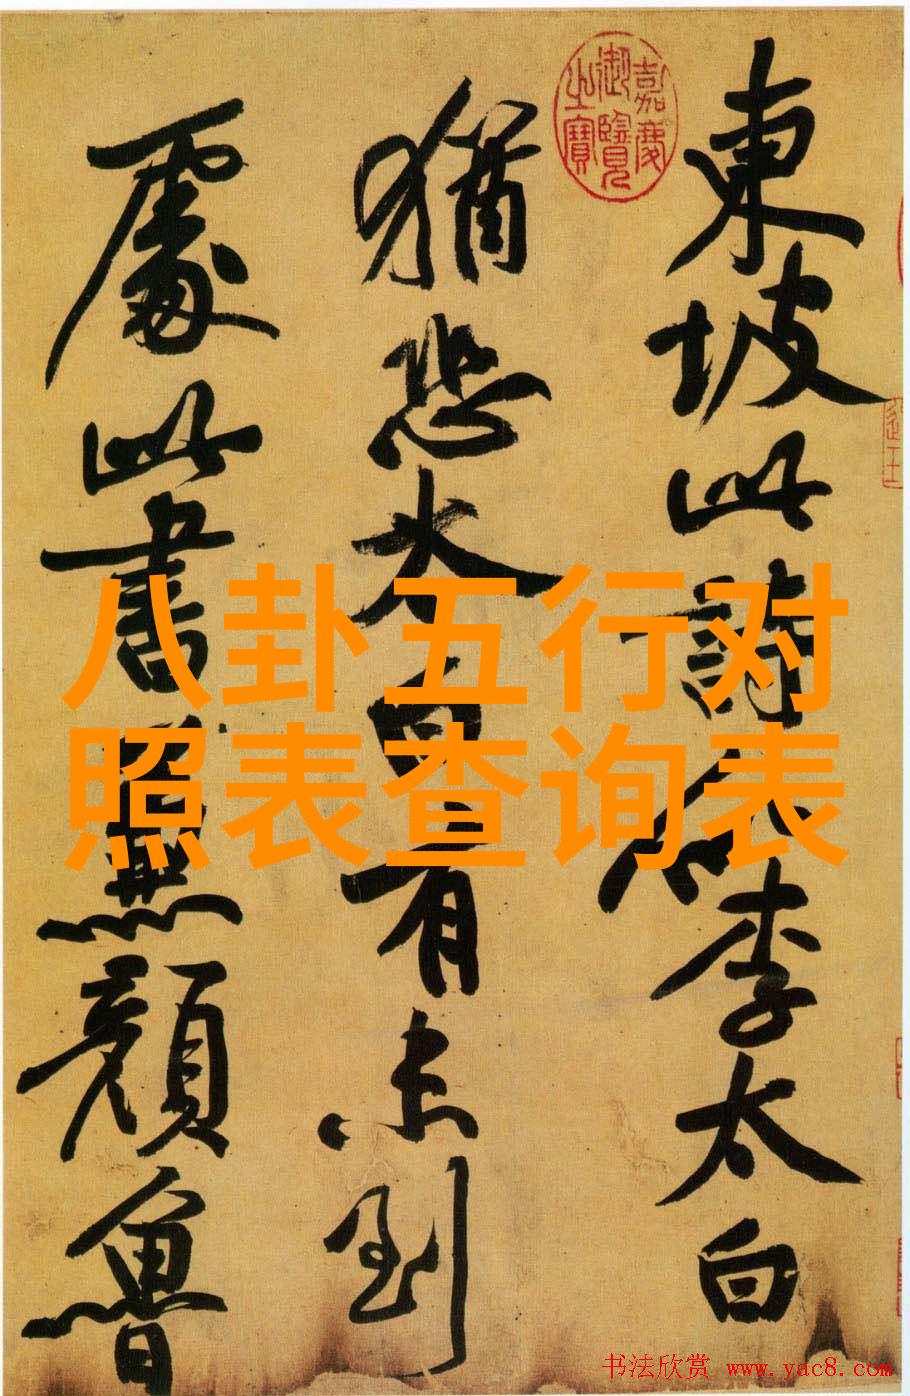 嘉慶御覽之寶
東坡此詩似李太白
猶恐太白有未到
處此書兼顏魯
八卦五行对
照表查询表
书法欣赏 www.yac8.com